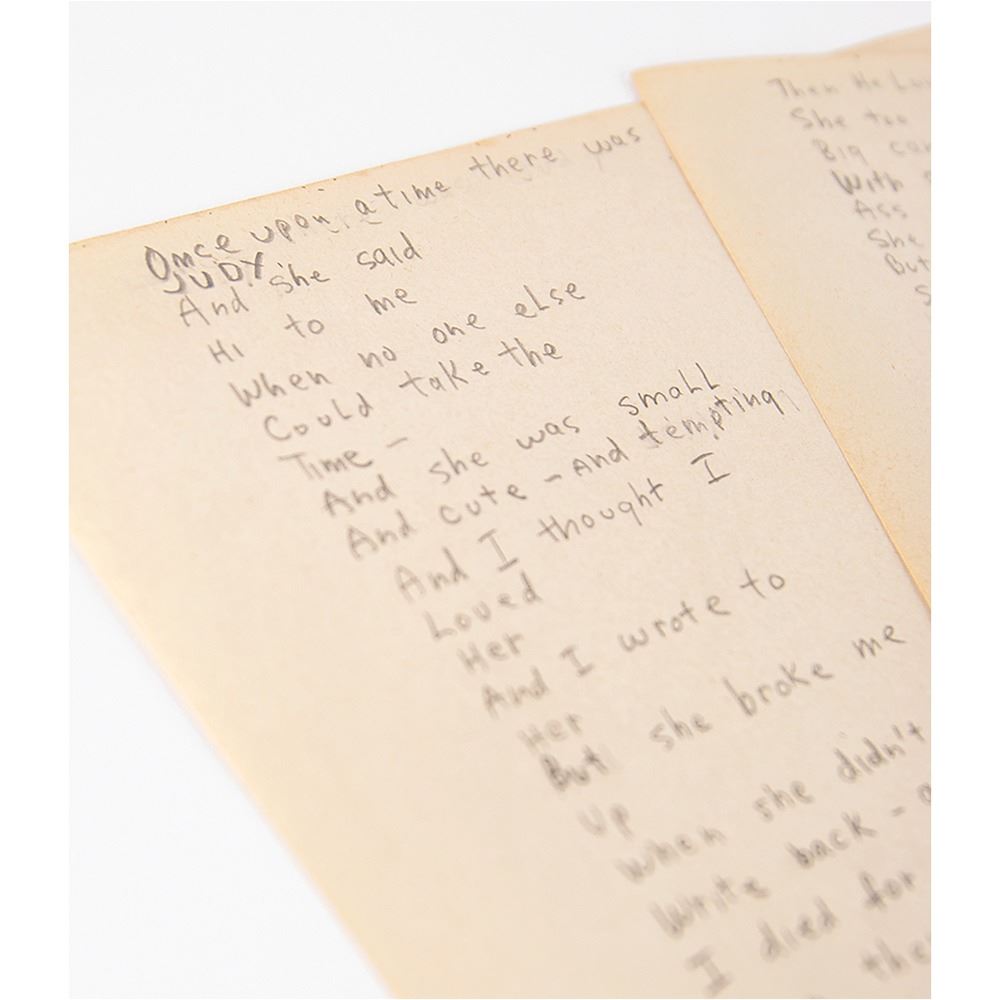 Once upon a time there was
JUDY
And she said
Hi to me
When no one else
Could take the
Time –
And she was small
And cute – And tempting
And I thought I
Loved
Her
And I wrote to
Her
But she broke me
Up
When she didn't
Write back –
I died for
Then He
She too
Big
With
Ass
She
But